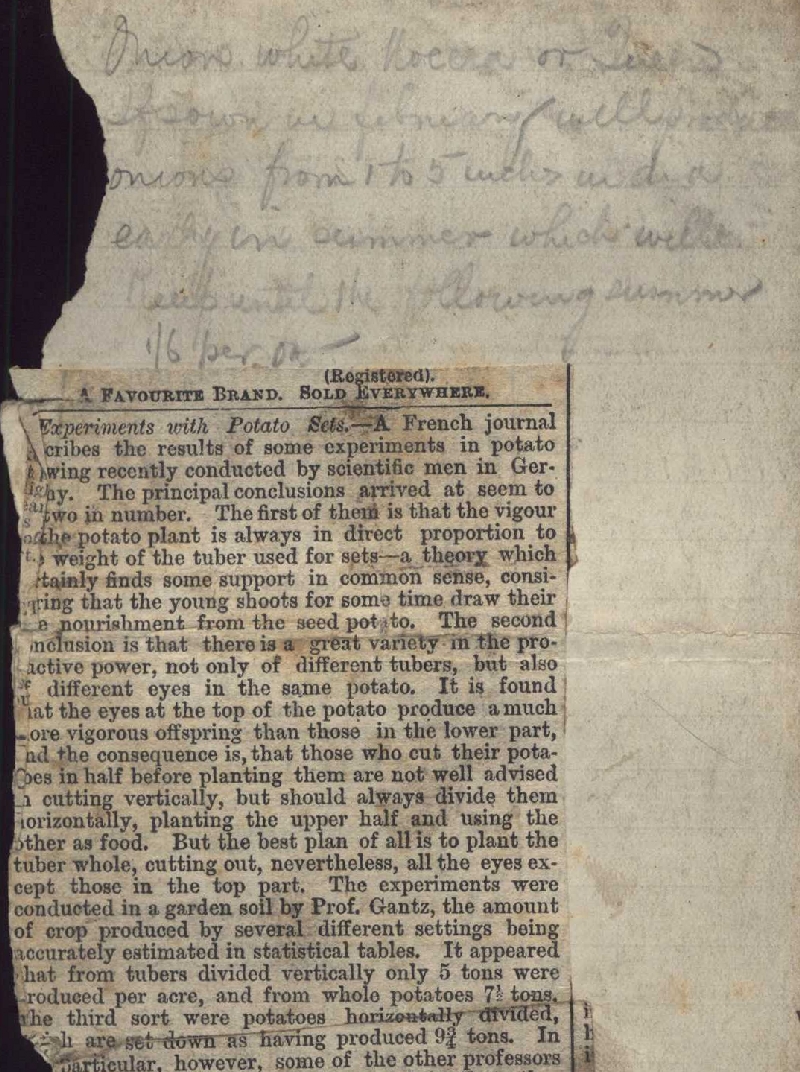 Onion white Nocera or Queen
If sown in february will produce
onions from 1 to 5 inches in dia
early in summer which will
Keep until the following summer
1/6 per oz
(Registered).
A FAVOURITE BRAND. SOLD EVERYWHERE.
Experiments with Potato Sets.—A French journal
cribes the results of some experiments in potato
wing recently conducted by scientific men in Ger-
ny. The principal conclusions arrived at seem to
two in number. The first of them is that the vigour
the potato plant is always in direct proportion to
weight of the tuber used for sets—a theory which
tainly finds some support in common sense, consi-
ring that the young shoots for some time draw their
e nourishment from the seed potato. The second
nclusion is that there is a great variety in the pro-
active power, not only of different tubers, but also
f different eyes in the same potato. It is found
hat the eyes at the top of the potato produce a much
ore vigorous offspring than those in the lower part,
nd the consequence is, that those who cut their pota-
oes in half before planting them are not well advised
n cutting vertically, but should always divide them
orizontally, planting the upper half and using the
other as food. But the best plan of all is to plant the
tuber whole, cutting out, nevertheless, all the eyes ex-
cept those in the top part. The experiments were
conducted in a garden soil by Prof. Gantz, the amount
of crop produced by several different settings being
accurately estimated in statistical tables. It appeared
that from tubers divided vertically only 5 tons were
roduced per acre, and from whole potatoes 7½ tons.
The third sort were potatoes horizontally divided,
ch are set down as having produced 9¾ tons. In
particular, however, some of the other professors